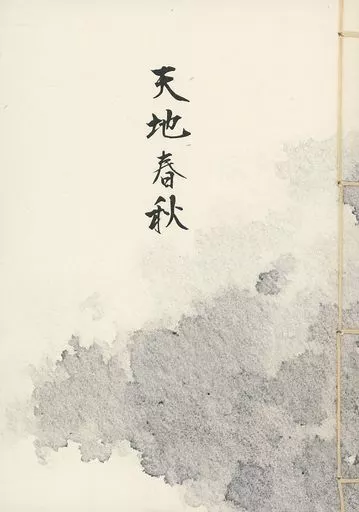 天地春秋